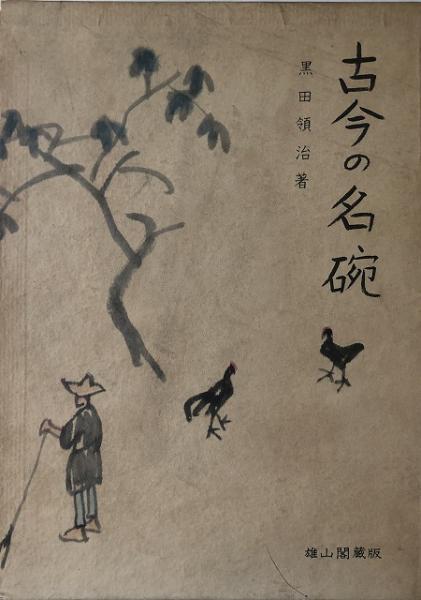 古今の名碗
黒田領治著
雄山閣藏版